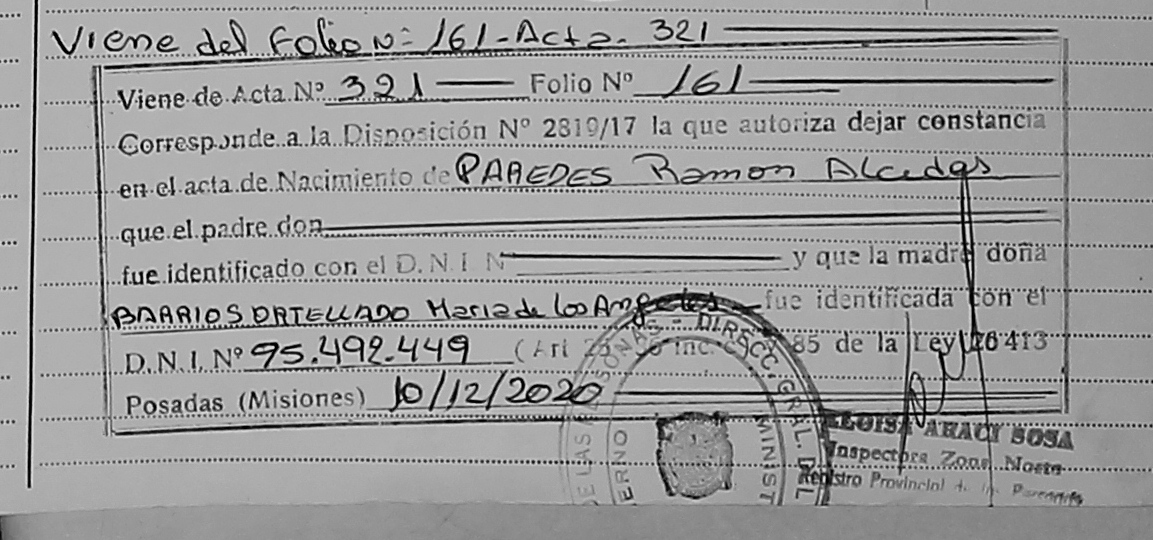 Viene del Folio Nº 161 - Acta - 321
Viene de Acta Nº 321 Folio Nº 161
Corresponde a la Disposición Nº 2819/17 la que autoriza dejar constancia
en el acta de Nacimiento de PAREDES Ramon
que el padre don
fue identificado con el D.N.I N y que la madre doña
BARRIOS ORTELLADO Maria de los Angeles fue identificada con el
D.N.I. Nº 95.492.449 (Art inc. 85 de la Ley 26413
Posadas (Misiones) 10/12/2020
DE LAS SONAS - DIRECC. GRAL. DEL
ERNO MINIST
ARACY SOSA
Inspectora Zona Norte
Registro Provincial